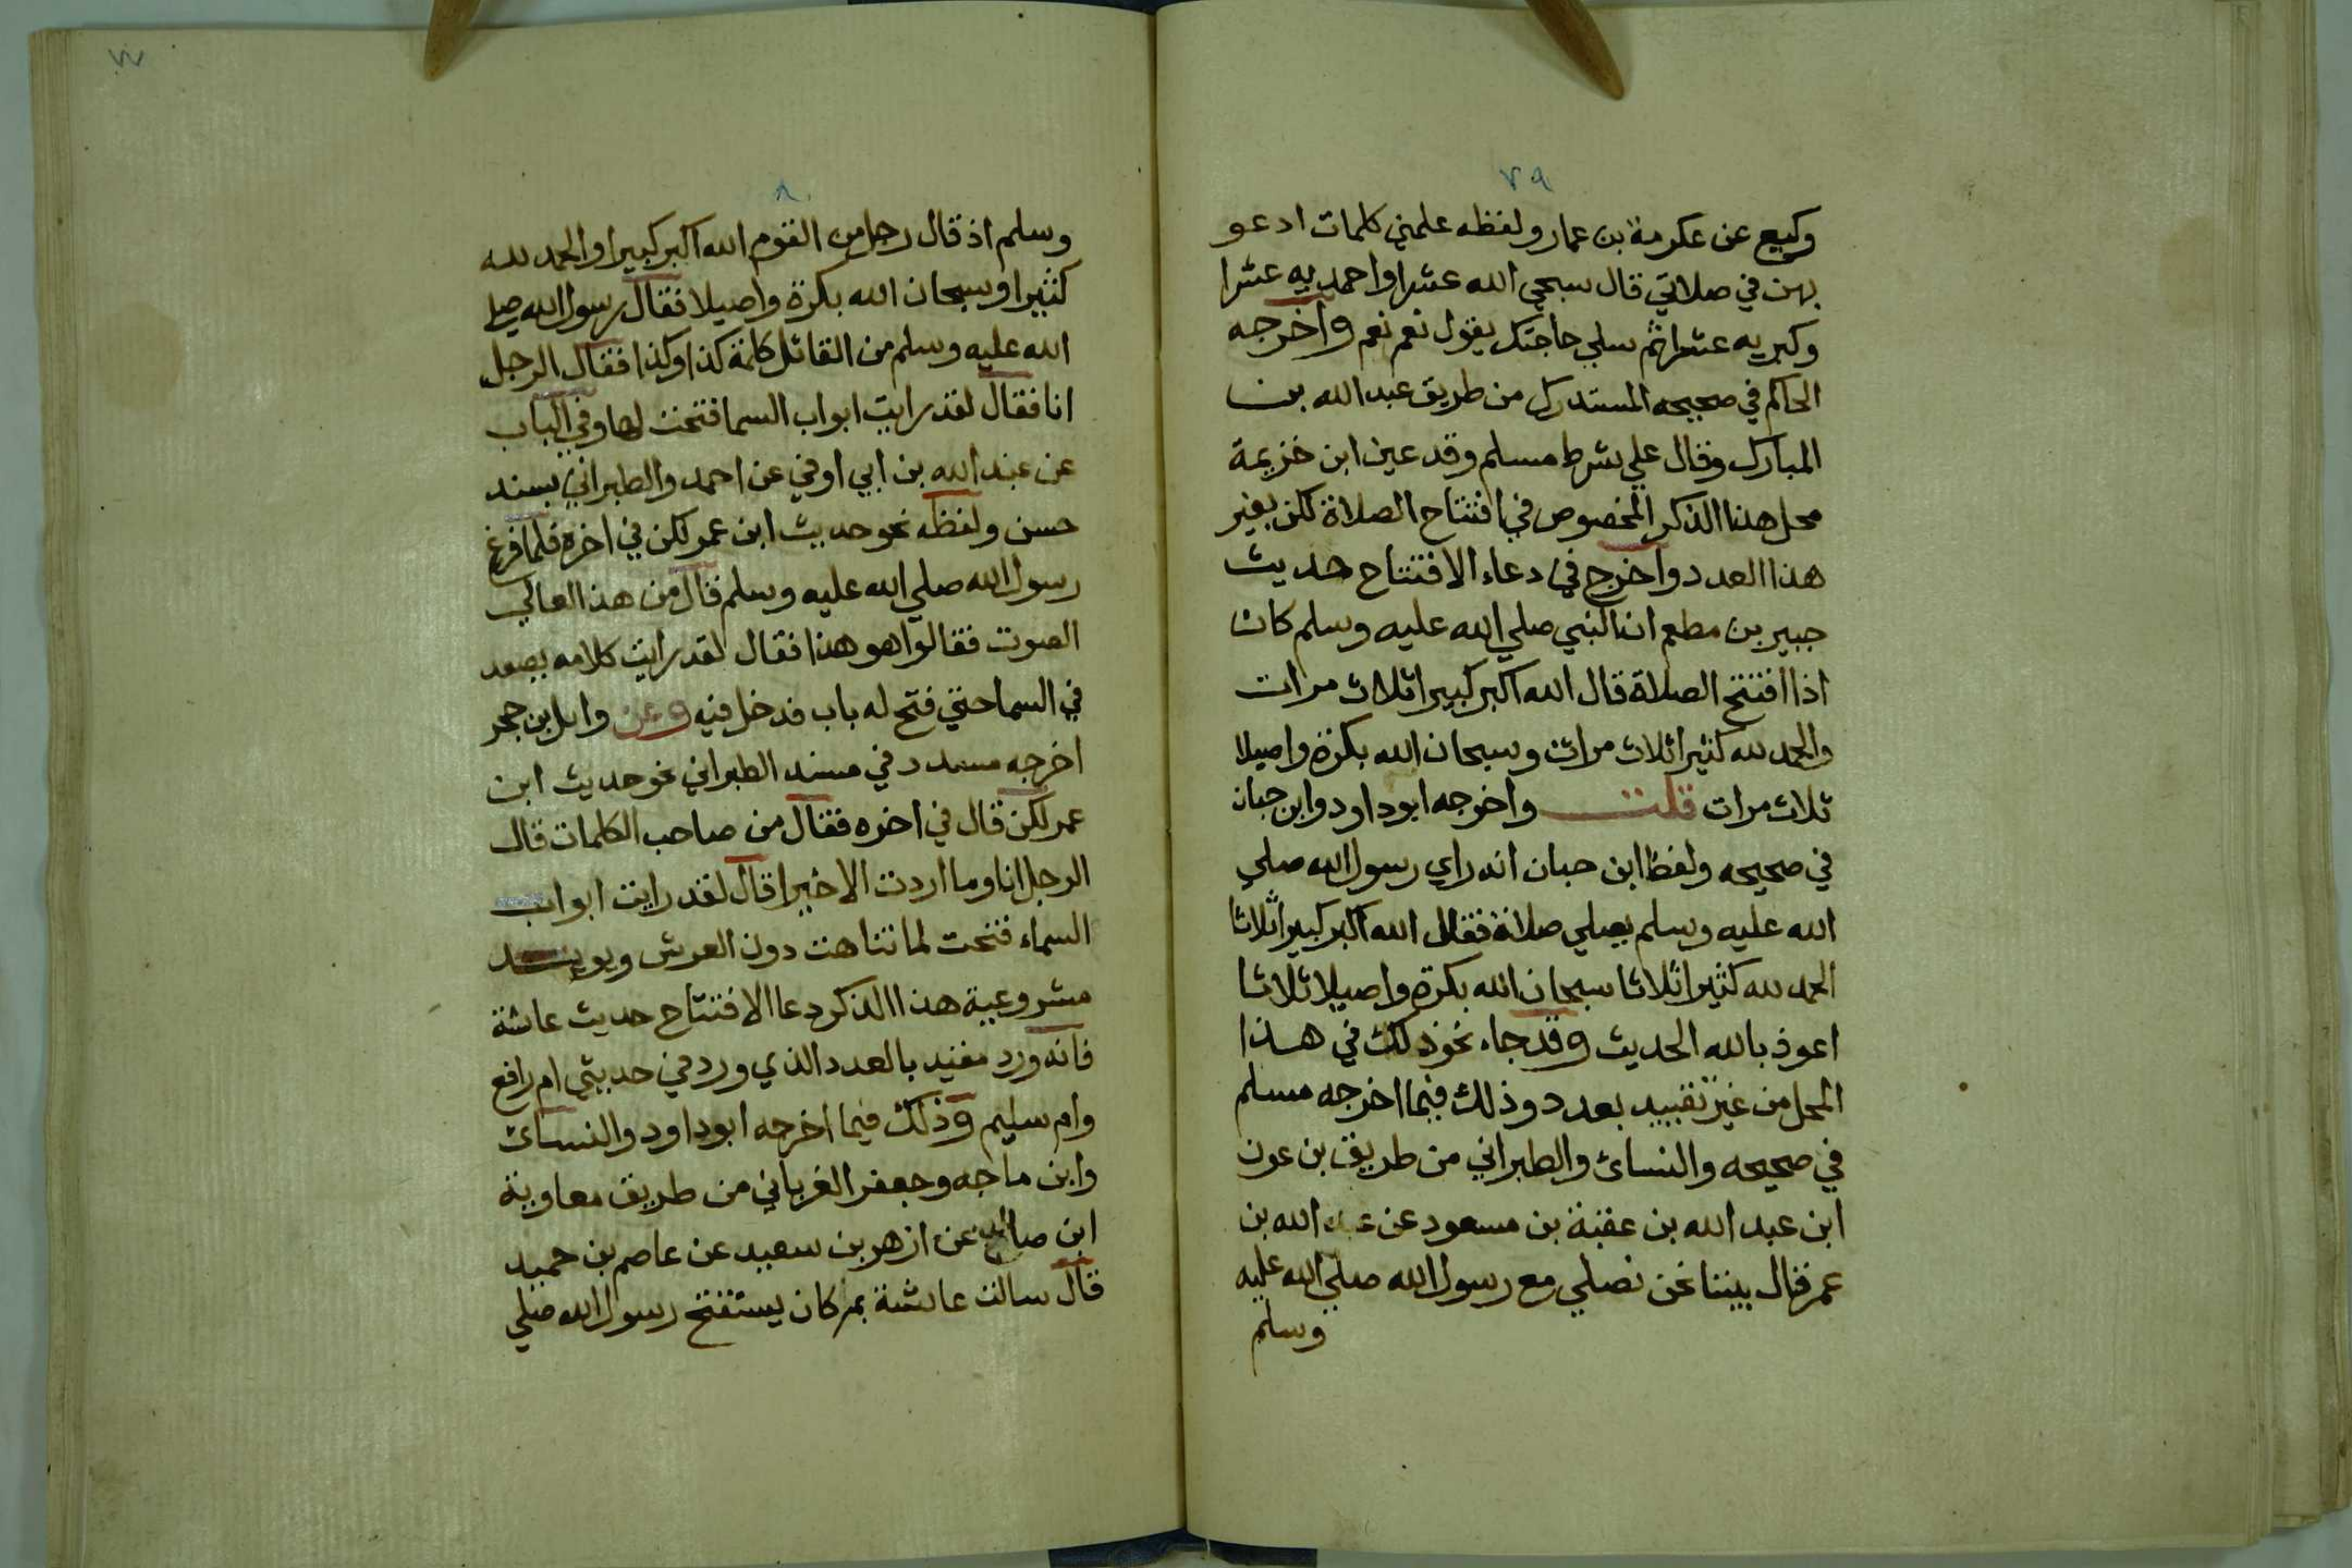 ٧٩
وكيع عن عكرمة بن عمار ولفظه علمني كلمات ادعو
بهن في صلاتي قال سبحي الله عشرا واحمديه عشرا
وكبريه عشرا ثم سلي حاجتك يقول نعم نعم واخرجه
الحاكم في صحيحه المستدرك من طريق عبد الله بن
المبارك وقال علي شرط مسلم وقد عين ابن خزيمة
محل هذا الذكر المخصوص في افتتاح الصلاة لكن بغير
هذا العدد واخرج في دعاء الافتتاح حديث
جبير بن مطعم ان النبي صلي الله عليه وسلم كان
اذا افتتح الصلاة قال الله اكبر كبيرا ثلاث مرات
والحمد لله كثيرا ثلاث مرات وسبحان الله بكرة واصيلا
ثلاث مرات قلت واخرجه ابو داود وابن حبان
في صحيحه ولفظ ابن حبان انه راي رسول الله صلي
الله عليه وسلم يصلي صلاة فقال الله اكبر كبيرا ثلاثا
الحمد لله كثيرا ثلاثا سبحان الله بكرة واصيلا ثلاثا
اعوذ بالله الحديث وقد جاء نحو ذلك في هذا
المحل من غير تقييد بعدد وذلك فيما اخرجه مسلم
في صحيحه والنسائ والطبراني من طريق بن عون
ابن عبد الله بن عقبة بن مسعود عن عبد الله بن
عمر قال بيننا نحن نصلي مع رسول الله صلي الله عليه
وسلم
٨٠
وسلم اذ قال رجل من القوم الله اكبر كبيرا والحمد لله
كثيرا وسبحان الله بكرة واصيلا فقال رسول الله صلي
الله عليه وسلم من القائل كلمة كذا وكذا فقال الرجل
انا فقال لقد رايت ابواب السما فتحت لها وفي الباب
عن عبد الله بن ابي اوفي عن احمد والطبراني بسند
حسن ولفظه نحو حديث ابن عمر لكن في اخره فلما فرغ
رسول الله صلي الله عليه وسلم قال من هذا العالي
الصوت فقالوا هو هذا فقال لقد رايت كلامه يصعد
في السما حتي فتح له باب فدخل فيه وعن وايل بن حجر
اخرجه مسدد في مسند الطبراني نحو حديث ابن
عمر لكن قال في اخره فقال من صاحب الكلمات قال
الرجل انا وما اردت الا خيرا قال لقد رايت ابواب
السماء فتحت لما تناهت دون العرش ويويد
مشروعية هذا الذكر دعا الافتتاح حديث عاشة
فانه ورد مفيد بالعدد الذي ورد في حديثي ام رافع
وام سليم وذلك فيما اخرجه ابو داود والنسائ
وابن ماجه وجعفر الغرباني من طريق معاوية
ابن صالح عن ازهر بن سعيد عن عاصم بن حميد
قال سالت عاشة بم كان يستفتح رسول الله صلي